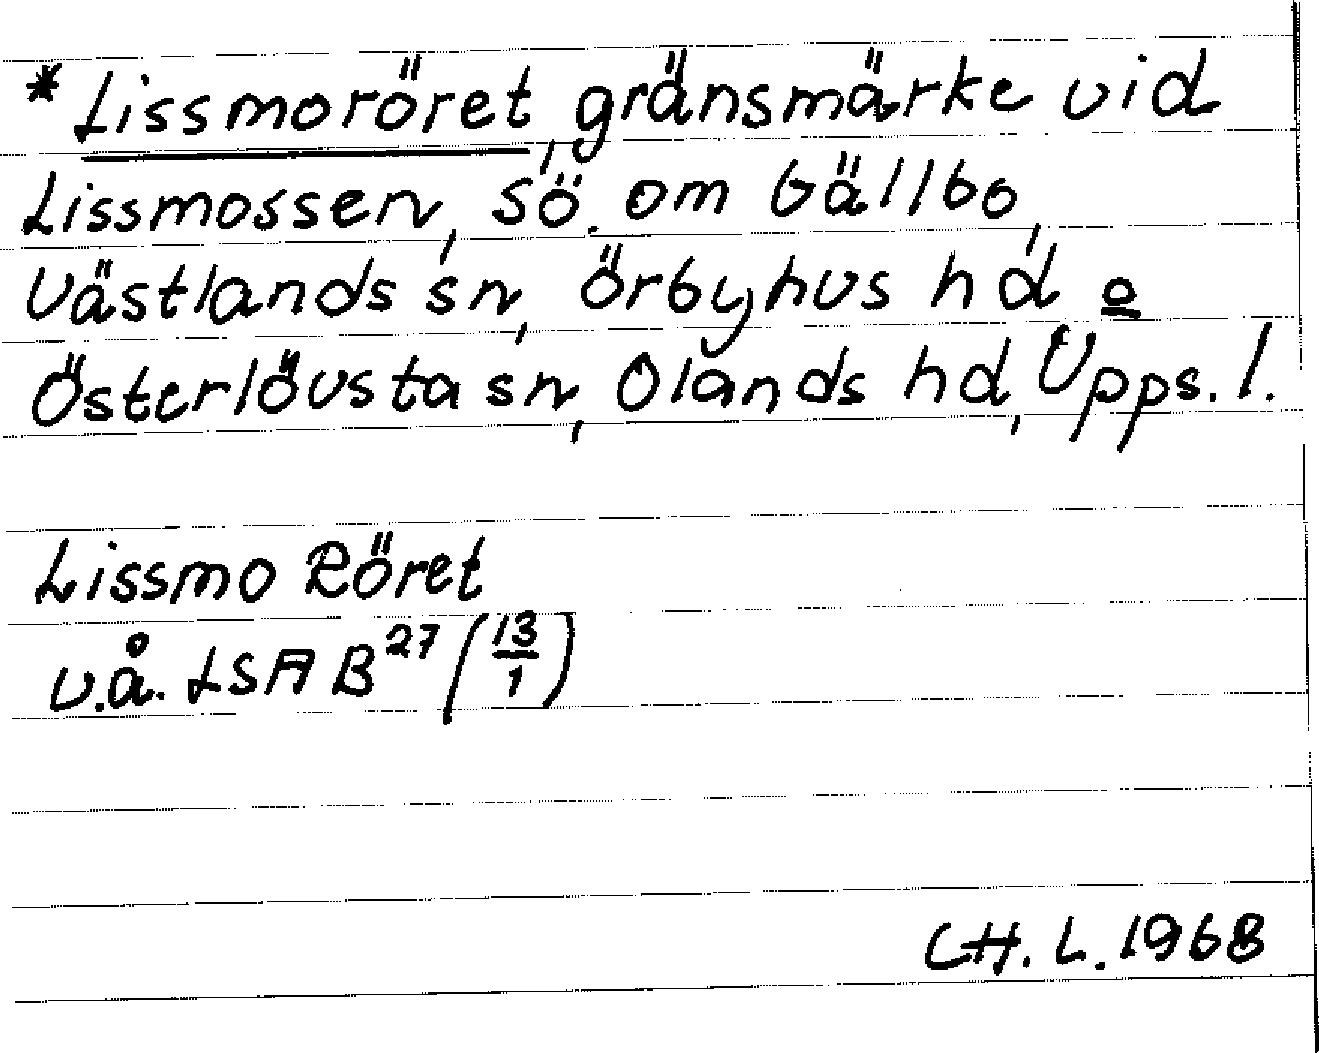 *Lissmoröret, gränsmärke vid
Lissmossen, sö. om Vällbo,
Västlands sn, Örbyhus hd o
Österlövsta sn, Olands hd, Upps. l.
Lissmo Röret
v.å. LSA B27 (13/1)
CH. L. 1968